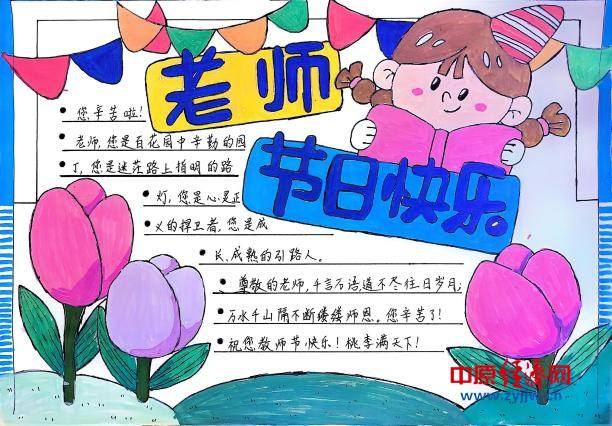 老师
节日快乐。
您辛苦啦!
老师,您是百花园中辛勤的园
丁,您是迷茫路上指明的路
灯,您是心是正
义的捍卫者,您是成
长、成熟的引路人。
尊敬的老师,千言万语道不尽往日岁月;
万水千山隔不断缕缕师恩。您辛苦了!
祝您教师节快乐!桃李满天下!
中原经济网
www.zyjjw.cn